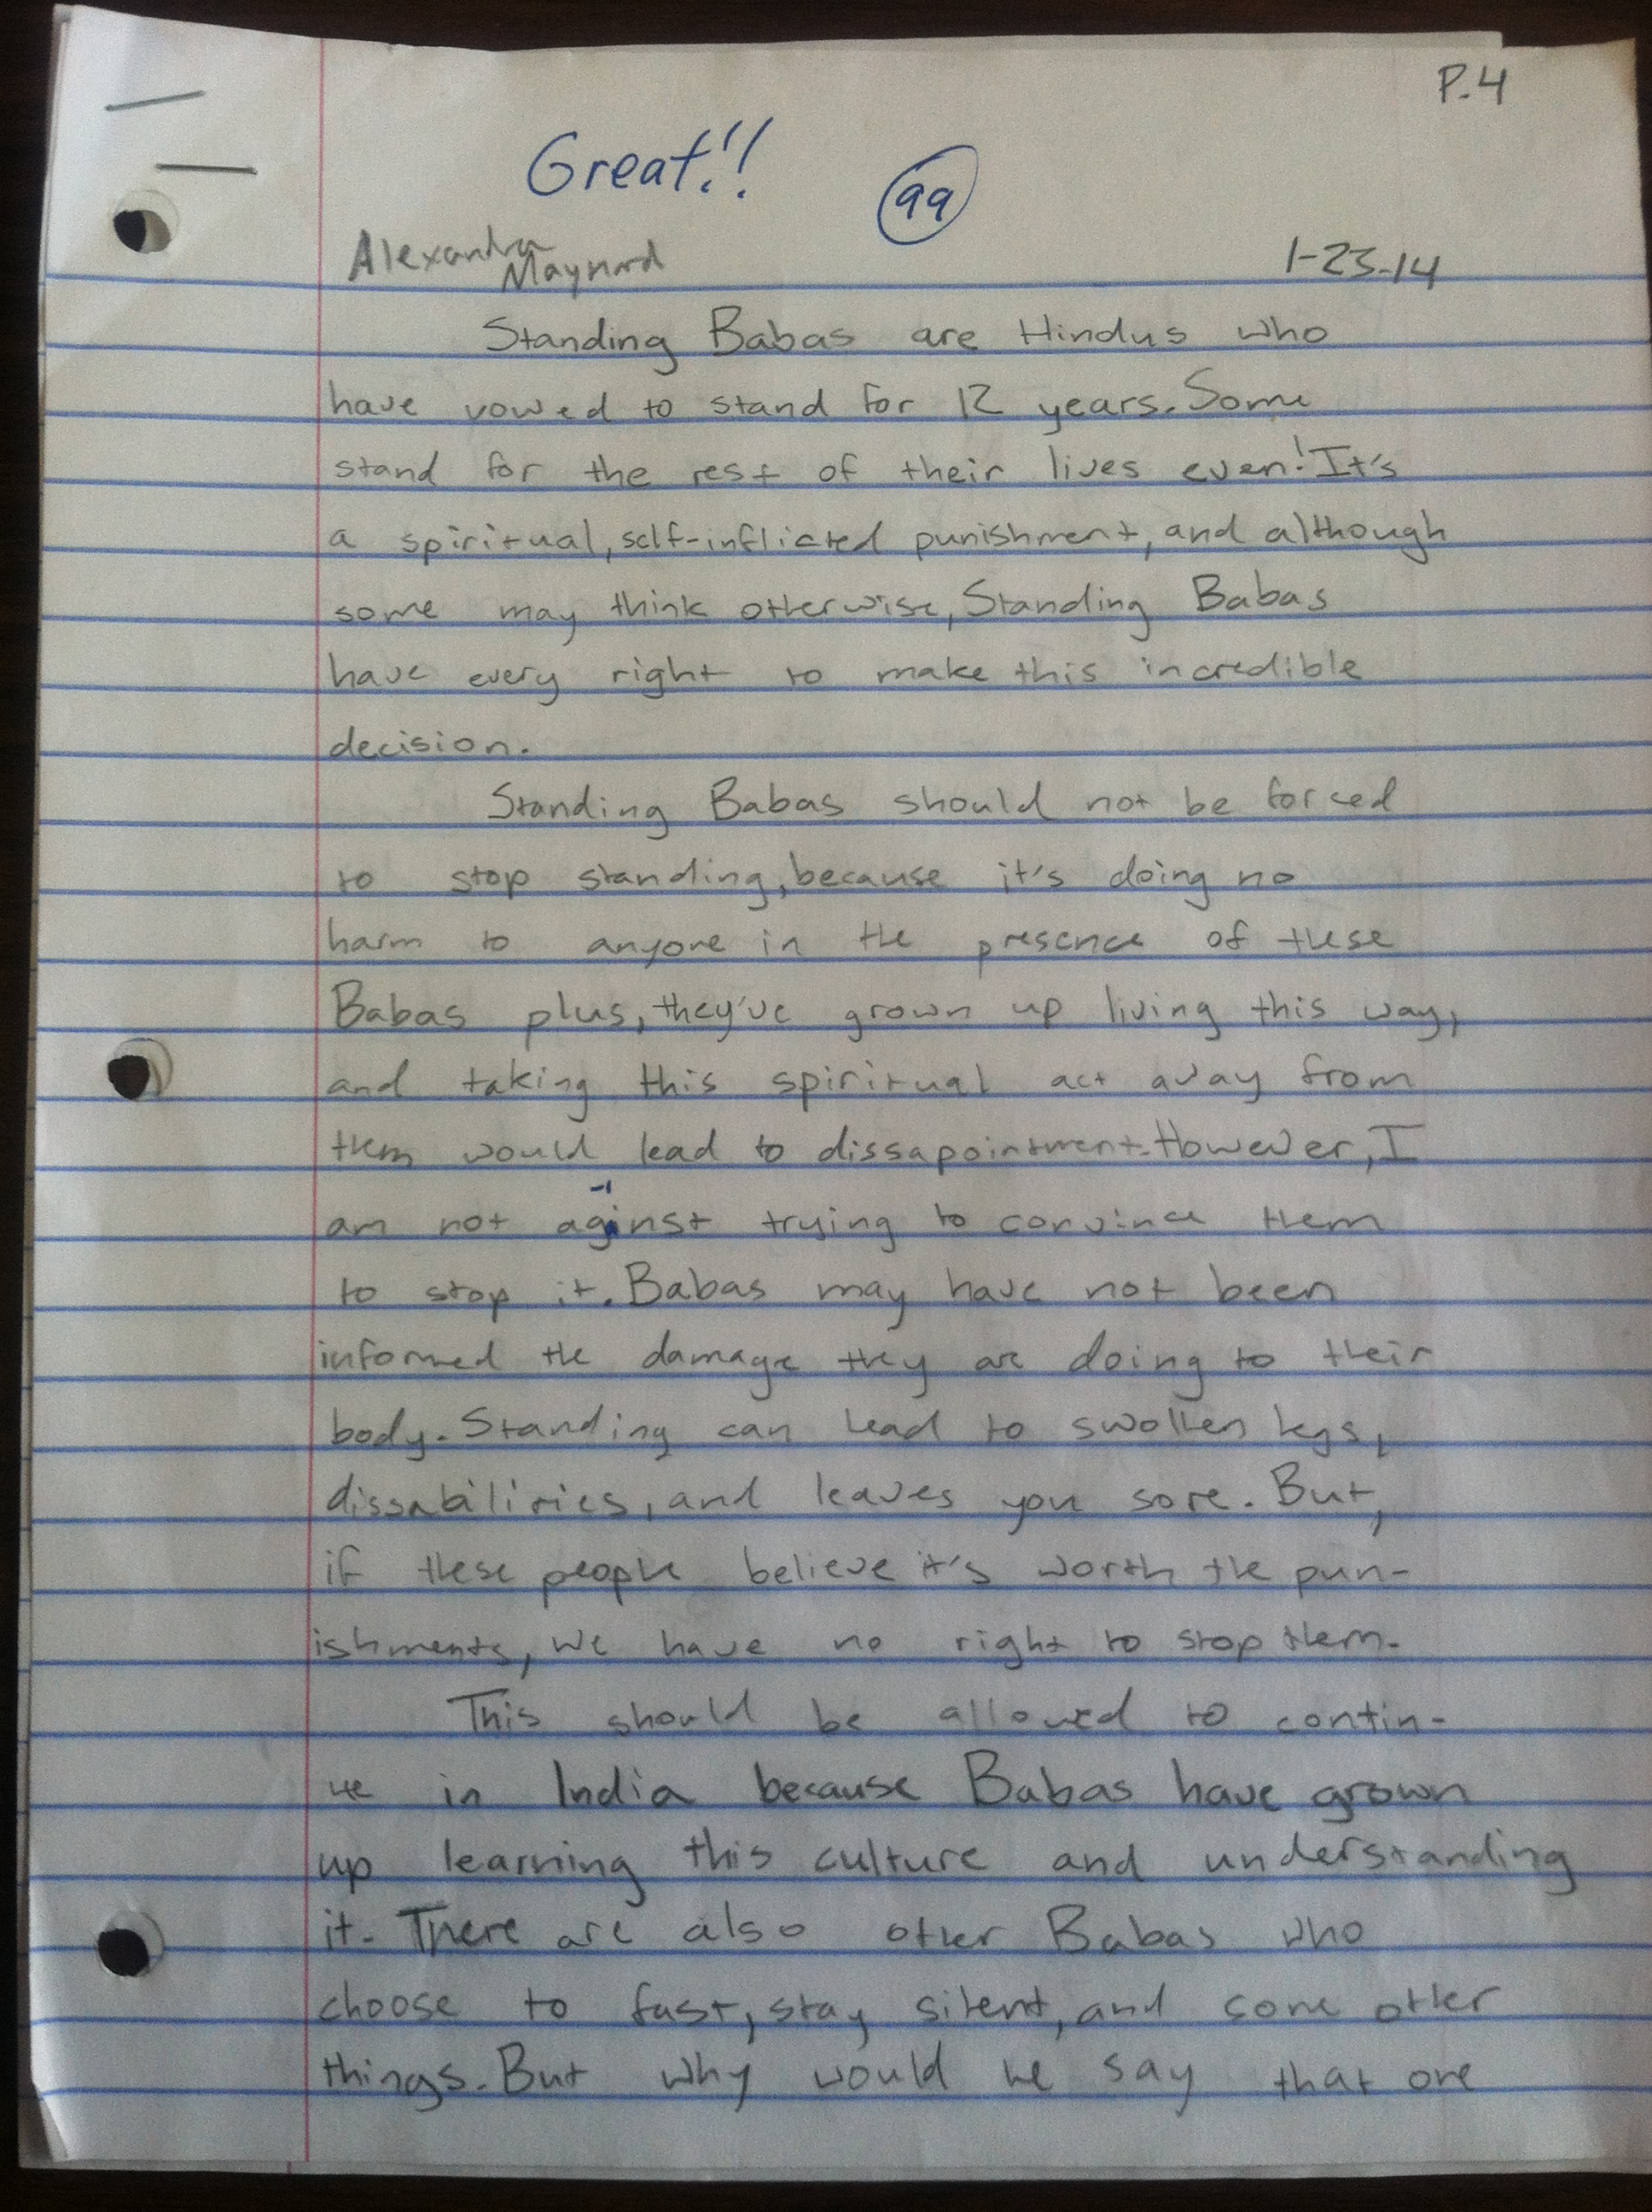 P.4
Great!!
99
Alexandra
Maynard
1-23-14
Standing Babas are Hindus who
have vowed to stand for 12 years. Some
stand for the rest of their lives even! It's
a spiritual, self-inflicted punishment, and although
some may think otherwise, Standing Babas
have every right to make this incredible
decision.
Standing Babas should not be forced
to stop standing, because it's doing no
harm to anyone in the presence of these
Babas plus, they've grown up living this way,
and taking this spiritual act away from
them would lead to dissapointment. However, I
-1
am not aginst trying to convince them
to stop it. Babas may have not been
informed the damage they are doing to their
body. Standing can lead to swollen legs,
dissabilities, and leaves you sore. But,
if these people believe it's worth the pun-
ishments, we have no right to stop them.
This should be allowed to contin-
ue in India because Babas have grown
up learning this culture and understanding
it. There are also other Babas who
choose to fast, stay silent, and some other
things. But why would we say that one